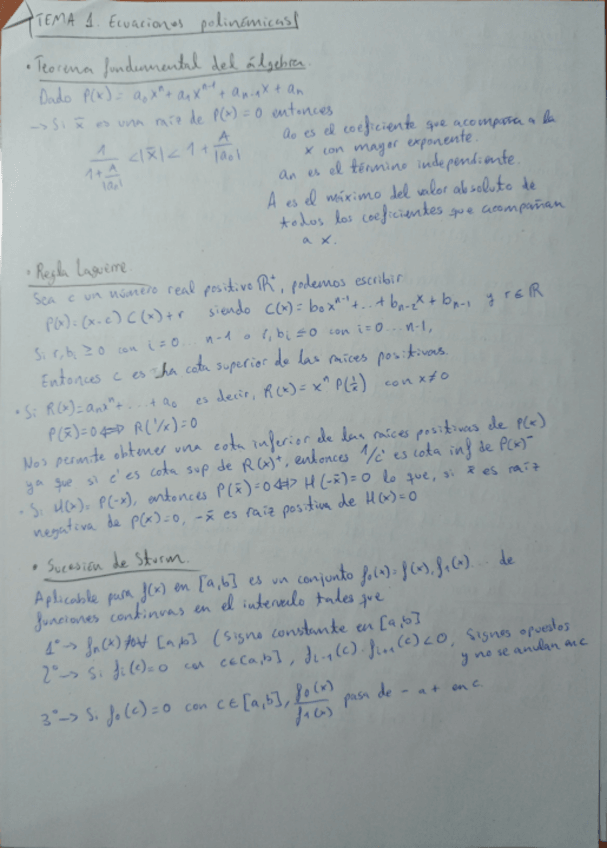 TEMA 1. Ecuaciones polinómicas
• Teorema fundamental del álgebra.
Dado P(x) = a₀xⁿ + a₁xⁿ⁻¹ + aₙ₋₁x + aₙ
→ Si x̄ es una raíz de P(x)=0 entonces
1/(1+A/|a₀|) < |x̄| < 1 + A/|a₀|
a₀ es el coeficiente que acompaña a la
x con mayor exponente.
aₙ es el término independiente.
A es el máximo del valor absoluto de
todos los coeficientes que acompañan
a x.
• Regla Laguirre.
Sea c un número real positivo ℝ⁺, podemos escribir
P(x) = (x-c) C(x) + r siendo C(x) = b₀xⁿ⁻¹ + ... + bₙ₋₂x + bₙ₋₁ y r∈ℝ
Si r, bᵢ ≥ 0 con i = 0 ... n-1 o r, bᵢ ≤ 0 con i = 0 ... n-1,
Entonces c es una cota superior de las raíces positivas.
• Si R(x) = aₙxⁿ + ... + a₀ es decir, R(x) = xⁿ P(1/x) con x≠0
P(x̄)=0 ⟺ R(1/x)=0
Nos permite obtener una cota inferior de las raíces positivas de P(x)
ya que si c' es cota sup de R(x)⁺, entonces 1/c' es cota inf de P(x)⁻
• Si H(x) = P(-x), entonces P(x̄)=0 ⟺ H(-x̄)=0 lo que, si x̄ es raíz
negativa de P(x)=0, -x̄ es raíz positiva de H(x)=0
• Sucesión de Sturm.
Aplicable para f(x) en [a,b] es un conjunto f₀(x)=f(x), f₁(x)... de
funciones continuas en el intervalo tales que
1º → fₙ(x) [a,b] (Signo constante en [a,b]
2º → Si fᵢ(c)=0 con c∈[a,b], fᵢ₋₁(c)·fᵢ₊₁(c)<0. Signos opuestos
y no se anulan en c
3º → Si f₀(c)=0 con c∈[a,b], f₀(x)/f₁(x) pasa de - a + en c